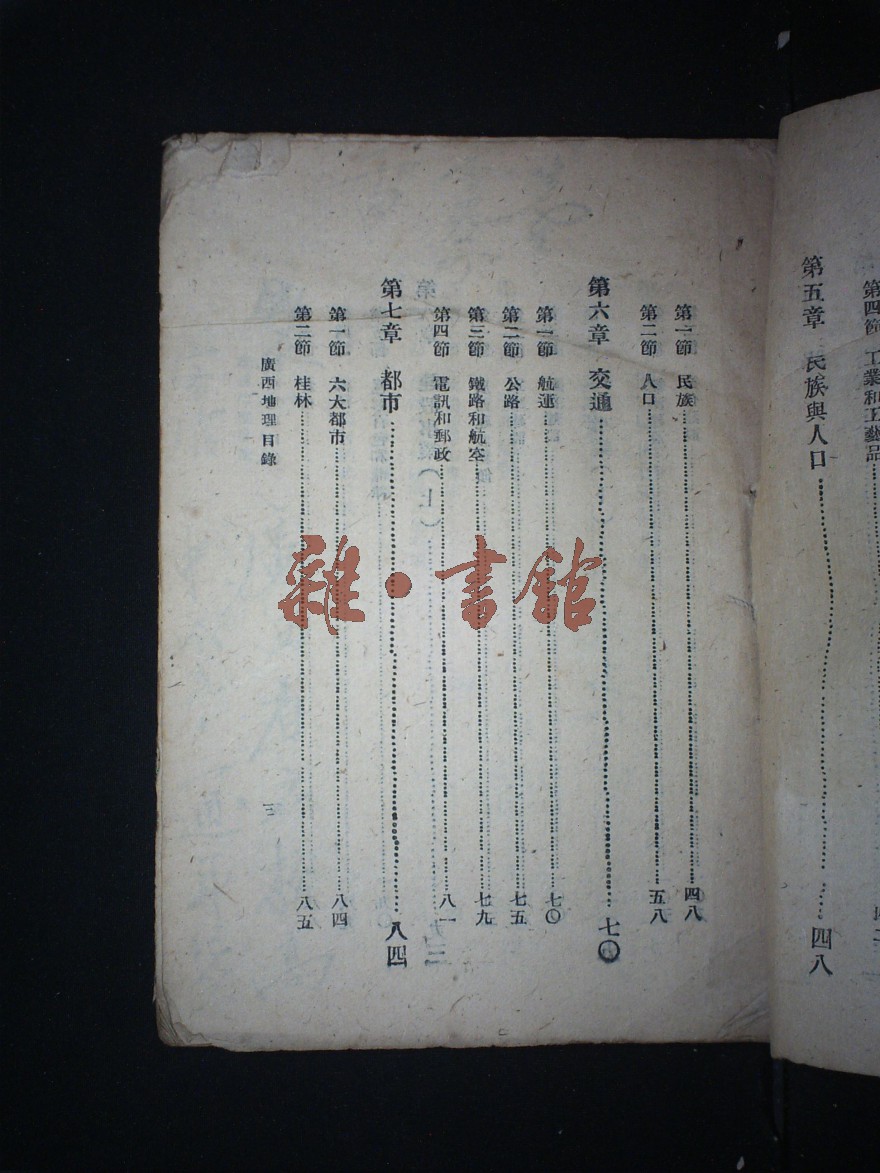 第四節　工業和工藝品
第五章　民族與人口……四八
第一節　民族……四八
第二節　人口……五八
第六章　交通……七〇
第一節　航運……七〇
第二節　公路……七五
第三節　鐵路和航空……七九
第四節　電訊和郵政……八一
第七章　都市……八四
第一節　六大都市……八四
第二節　桂林……八五
廣西地理目錄
三
雜·書館